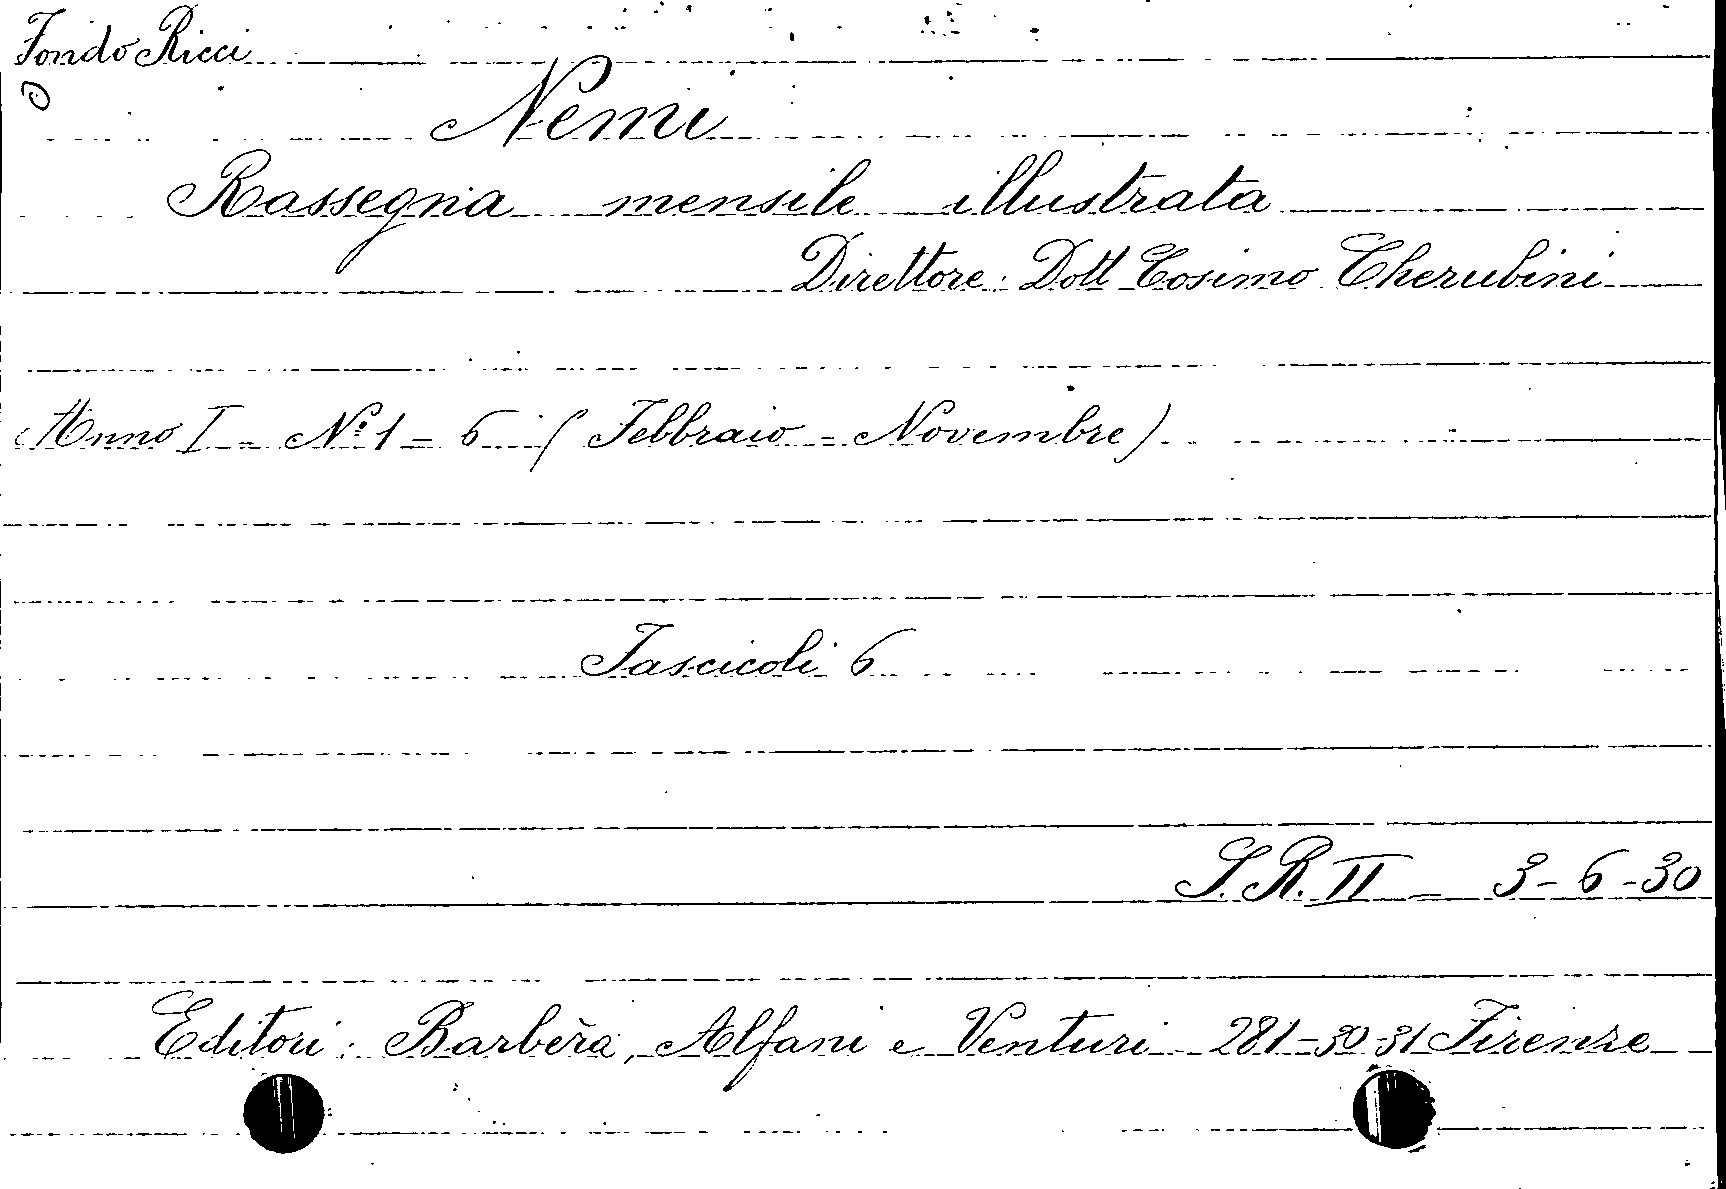 Fondo Ricci
Nemi
Rassegna mensile illustrata
Direttore: Dott Cosimo Cherubini
Anno I - Nº 1 - 6 (Febbraio - Novembre)
Fascicoli 6
S. R. II - 3-6-30
Editori: Barbèra, Alfani e Venturi 281-30-31 Firenze